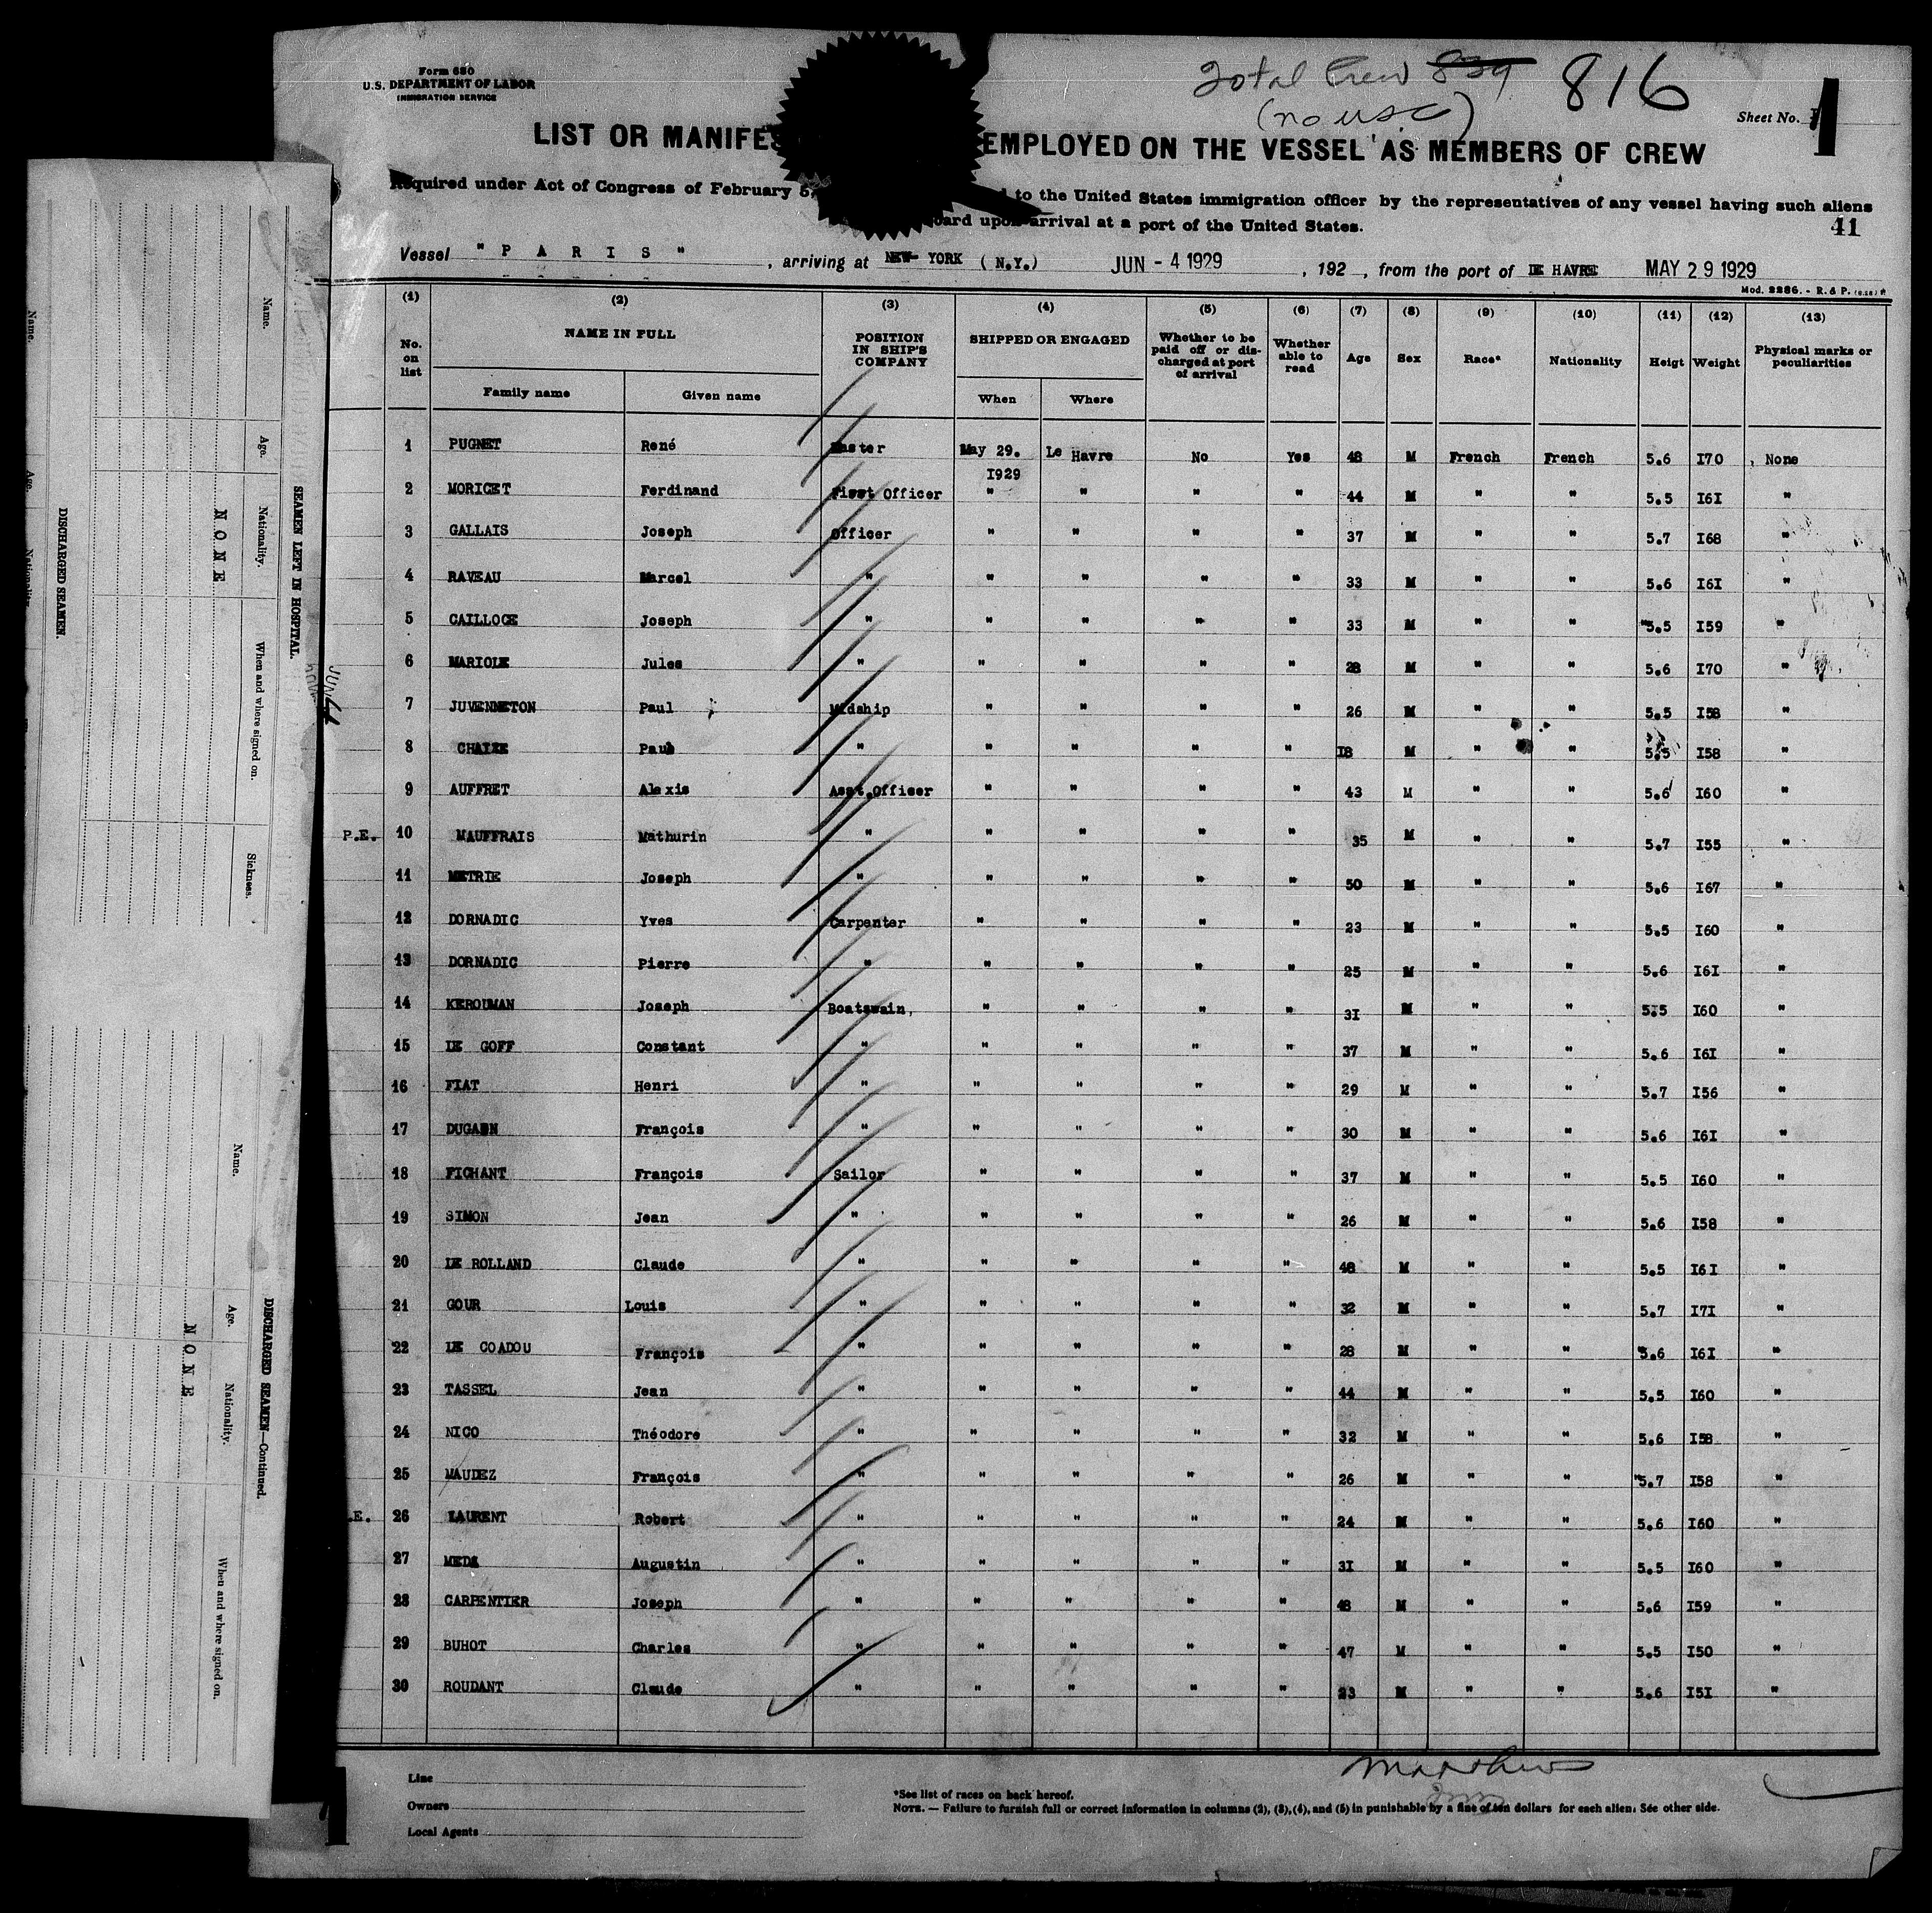 Form 680
U.S. DEPARTMENT OF LABOR
IMMIGRATION SERVICE
Total Crew 839 816
(no usc)
Sheet No. 1
LIST OR MANIFES EMPLOYED ON THE VESSEL AS MEMBERS OF CREW
Required under Act of Congress of February 5, to the United States immigration officer by the representatives of any vessel having such aliens
oard upon arrival at a port of the United States.
41
Vessel " P A R I S " , arriving at NEW YORK (N.Y.) JUN - 4 1929 , 192 , from the port of LE HAVRE MAY 29 1929
Mod. 2286. - R. & P.
(1) (2) (3) (4) (5) (6) (7) (8) (9) (10) (11) (12) (13)
No. on list NAME IN FULL POSITION IN SHIP'S COMPANY SHIPPED OR ENGAGED Whether to be paid off or discharged at port of arrival Whether able to read Age Sex Race* Nationality Heigt Weight Physical marks or peculiarities
Family name Given name When Where
1 PUGNET René Master May 29. 1929 Le Havre No Yes 48 M French French 5.6 I70 None
2 MORICET Ferdinand First Officer " " " " 44 M " " 5.5 I6I "
3 GALLAIS Joseph Officer " " " " 37 M " " 5.7 I68 "
4 RAVEAU Marcel " " " " " 33 M " " 5.6 I6I "
5 CAILLOCE Joseph " " " " " 33 M " " 5.5 I59 "
6 MARIOLE Jules " " " " " 28 M " " 5.6 I70 "
7 JUVENNETON Paul Midship " " " " 26 M " " 5.5 I58 "
8 CHAIZE Paul " " " " " I8 M " " 5.5 I58 "
9 AUFFRET Alexis Asst.Officer " " " " 43 M " " 5.6 I60 "
P.E. 10 MAUFFRAIS Mathurin " " " " " 35 M " " 5.7 I55 "
11 METRIE Joseph " " " " " 50 M " " 5.6 I67 "
12 DORNADIC Yves Carpenter " " " " 23 M " " 5.5 I60 "
13 DORNADIC Pierre " " " " " 25 M " " 5.6 I6I "
14 KEROUMAN Joseph Boatswain, " " " " 3I M " " 5.5 I60 "
15 LE GOFF Constant " " " " " 37 M " " 5.6 I6I "
16 FIAT Henri " " " " " 29 M " " 5.7 I56 "
17 François " " " " " 30 M " " 5.6 I6I "
18 FICHANT François Sailor " " " " 37 M " " 5.5 I60 "
19 SIMON Jean " " " " " 26 M " " 5.6 I58 "
20 LE ROLLAND Claude " " " " " 48 M " " 5.5 I6I "
21 GOUR Louis " " " " " 32 M " " 5.7 I7I "
22 LE COADOU François " " " " " 28 M " " 5.6 I6I "
23 TASSEL Jean " " " " " 44 M " " 5.5 I60 "
24 NICO Théodore " " " " " 32 M " " 5.6 I58 "
25 MAUDEZ François " " " " " 26 M " " 5.7 I58 "
.E. 26 LAURENT Robert " " " " " 24 M " " 5.6 I60 "
27 Augustin " " " " " 3I M " " 5.5 I60 "
28 CARPENTIER Joseph " " " " " 48 M " " 5.6 I59 "
29 BUHOT Charles " " " " " 47 M " " 5.5 I50 "
30 ROUDANT Claude " " " " " 23 M " " 5.6 I5I "
Line
Owners
Local Agents
*See list of races on back hereof.
NOTE. — Failure to furnish full or correct information in columns (2), (3), (4), and (5) in punishable by a fine of ten dollars for each alien. See other side.
1
SEAMEN LEFT IN HOSPITAL.
Name. Age. Nationality. When and where signed on. Sickness.
N O N E
DISCHARGED SEAMEN.
Name. Age. Nationality.
DISCHARGED SEAMEN—Continued.
Name. Age. Nationality. When and where signed on.
N O N E
JUN